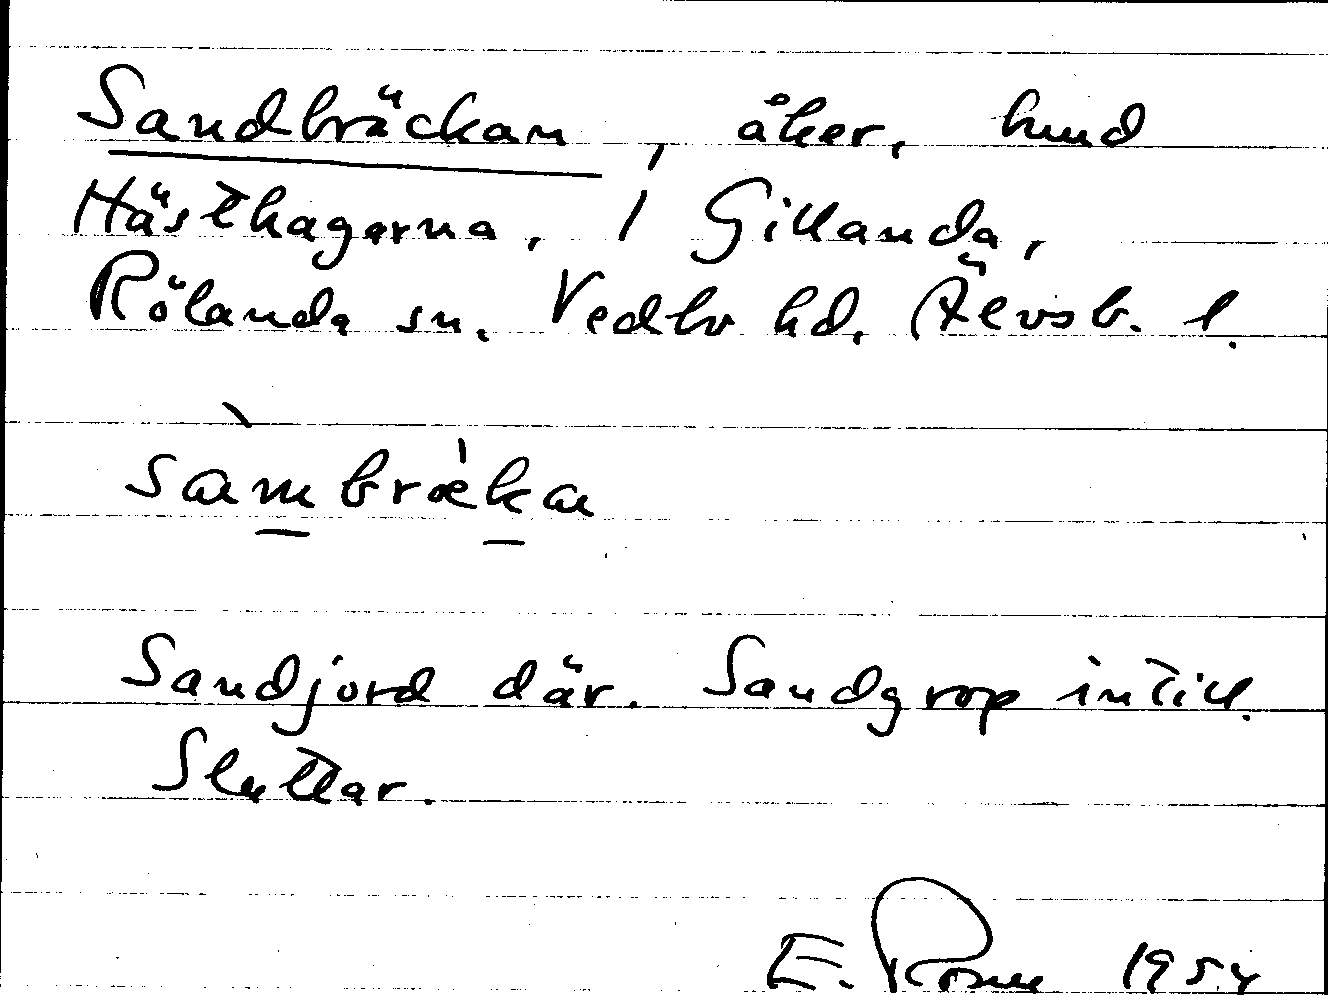 Sandbräckan, åker, hmd
Hästhagarna, / Gillanda,
Rölanda sn. Vedbo hd. Älvsb. l.
sambræka
Sandjord där. Sandgrop intill.
Sluttar.
E. 1954